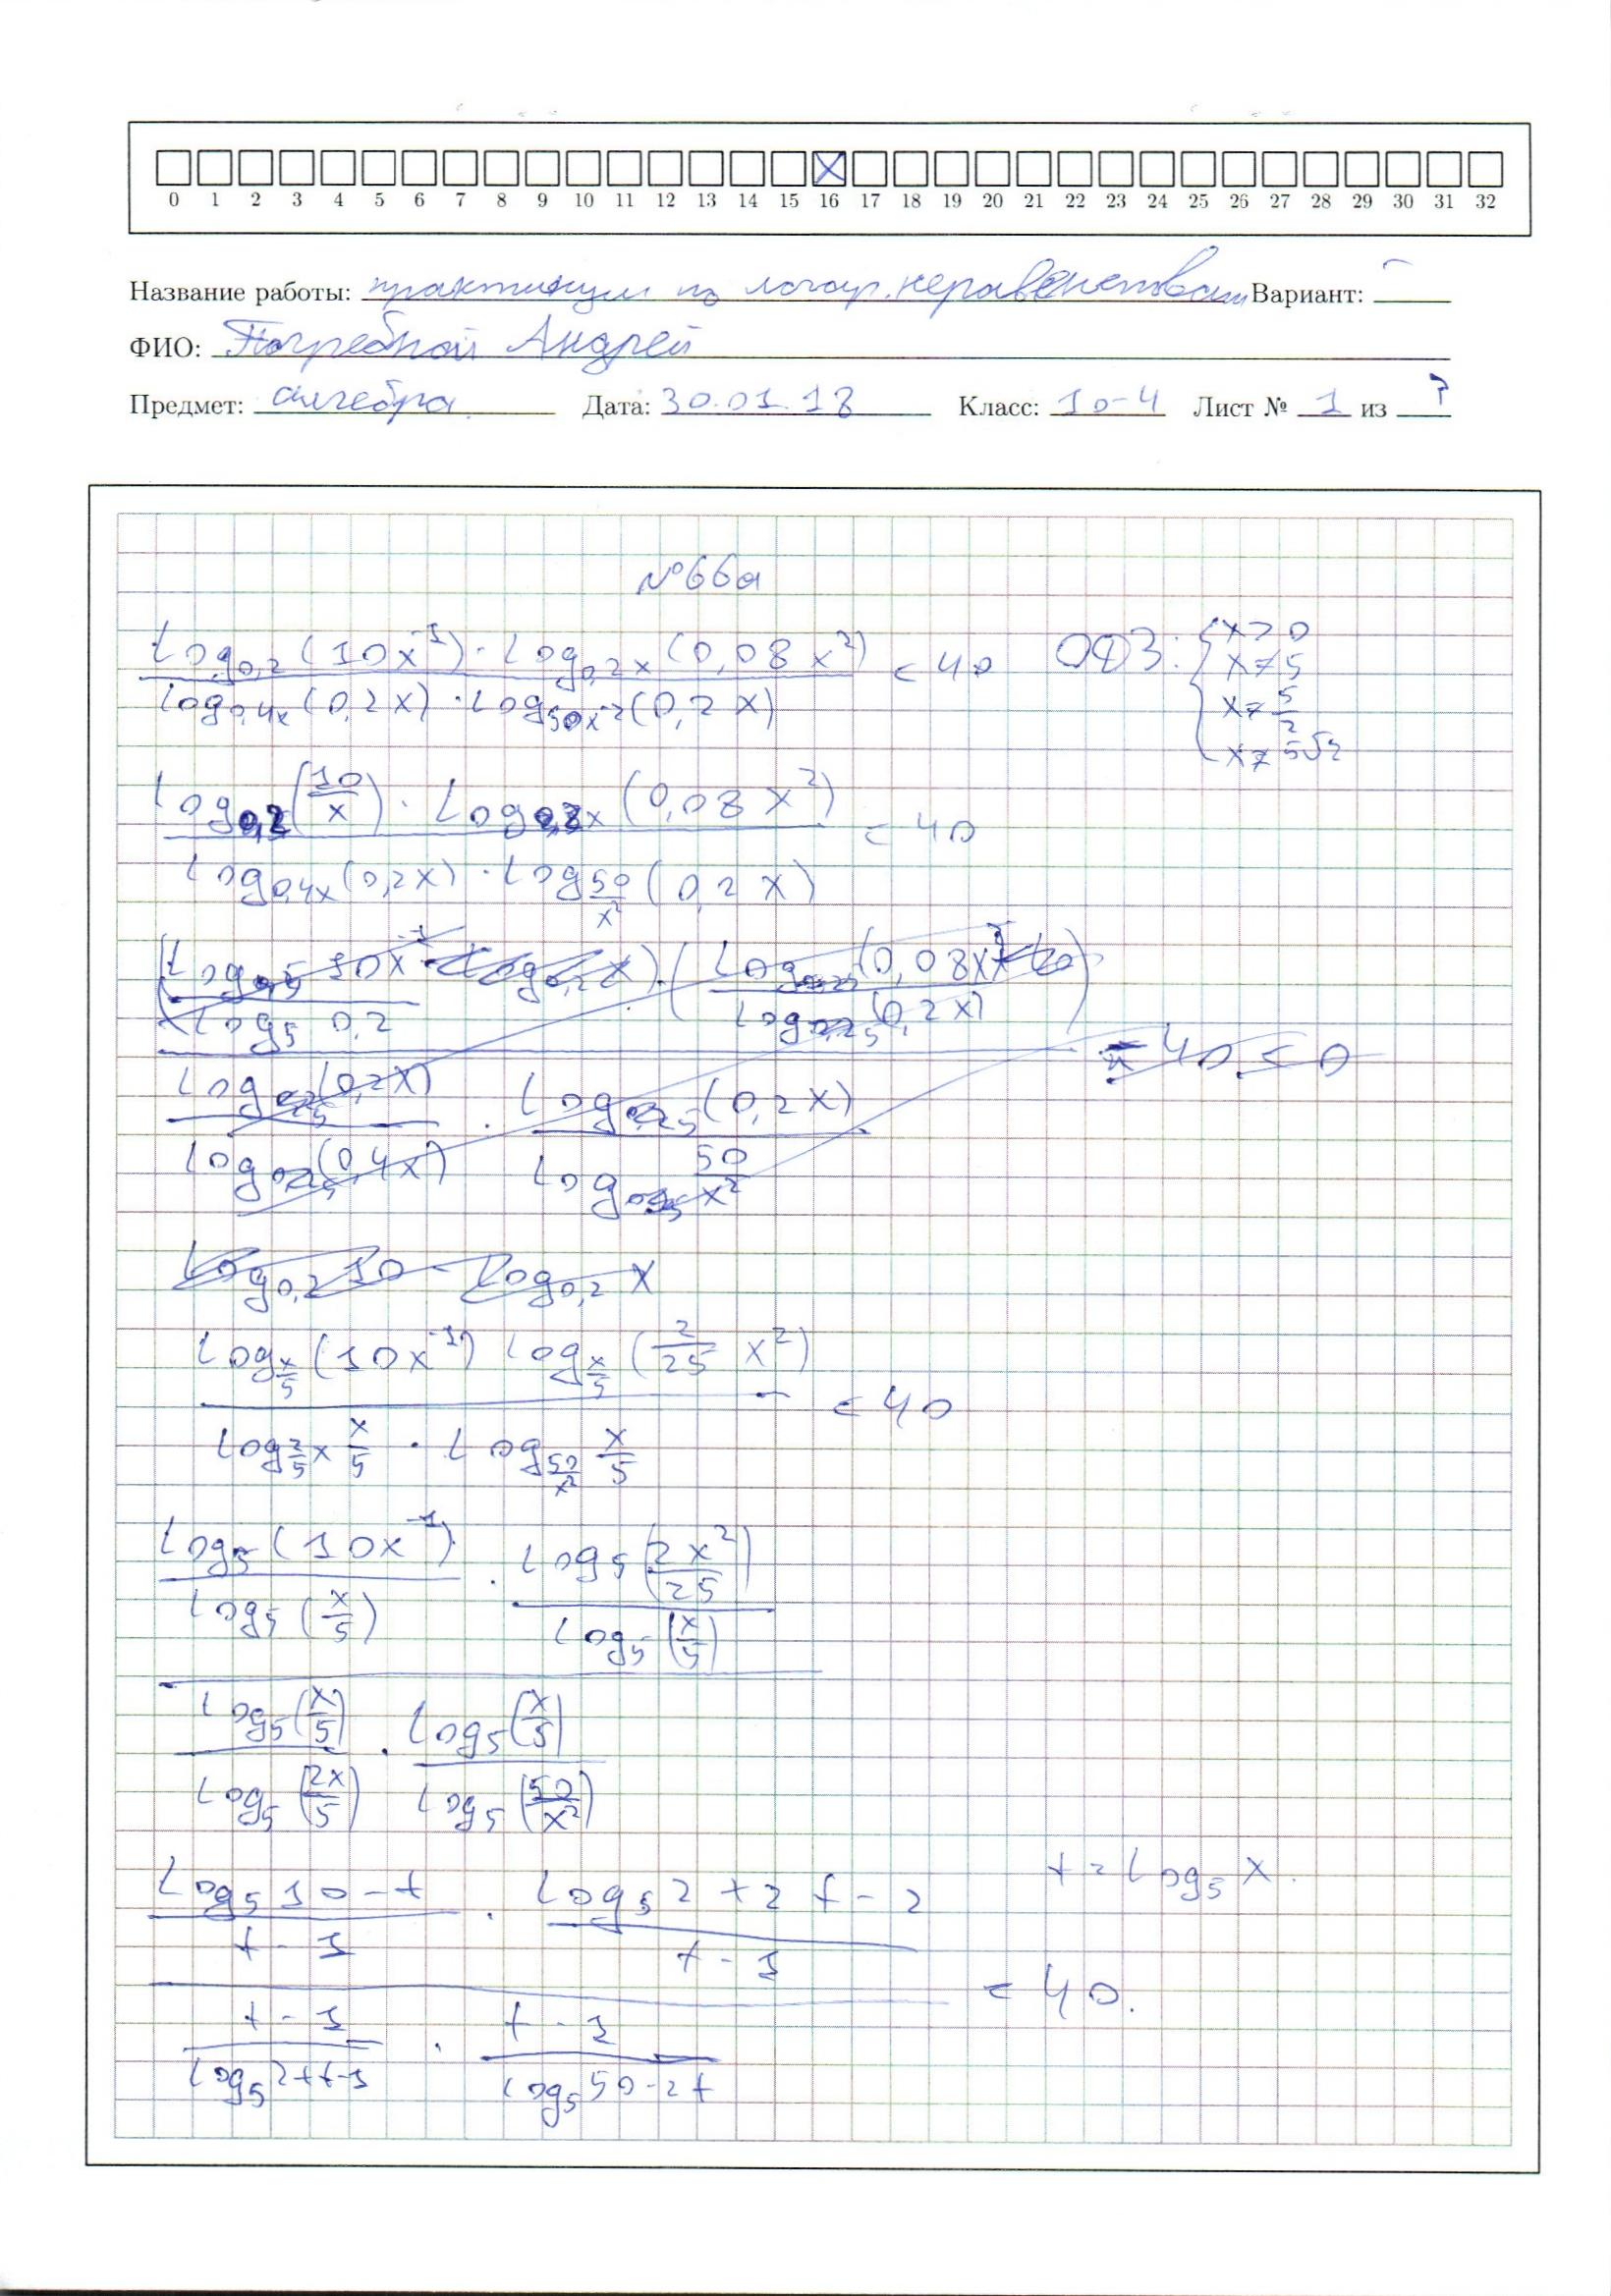 0 1 2 3 4 5 6 7 8 9 10 11 12 13 14 15 16 17 18 19 20 21 22 23 24 25 26 27 28 29 30 31 32
Название работы: практикум по логар. неравенствам Вариант: –
ФИО: Погребной Андрей
Предмет: алгебра Дата: 30.01.18 Класс: 10-4 Лист № 1 из 7
№66а
log_{0,2}(10x^{-1}) · log_{0,2x}(0,08x^2) / log_{0,4x}(0,2x) · log_{50x^{-2}}(0,2x) < 40 ОДЗ: { x>0
x≠5
x≠5/2
x≠5√2
log_{0,2}(10/x) · log_{0,2x}(0,08x^2) / log_{0,4x}(0,2x) · log_{50/x^2}(0,2x) < 40
log_{x/5}(10x^{-1}) log_{x/5}(2/25 x^2) / log_{2/5 x} x/5 · log_{50/x^2} x/5 < 40
log_5(10x^{-1}) / log_5(x/5) · log_5(2x^2/25) / log_5(x/5)
log_5(x/5) / log_5(2x/5) · log_5(x/5) / log_5(50/x^2)
t = log_5 x.
log_5 10 - t / t - 1 · log_5 2 + 2t - 2 / t - 1
t - 1 / log_5 2+t-1 · t - 1 / log_5 50-2t < 40.